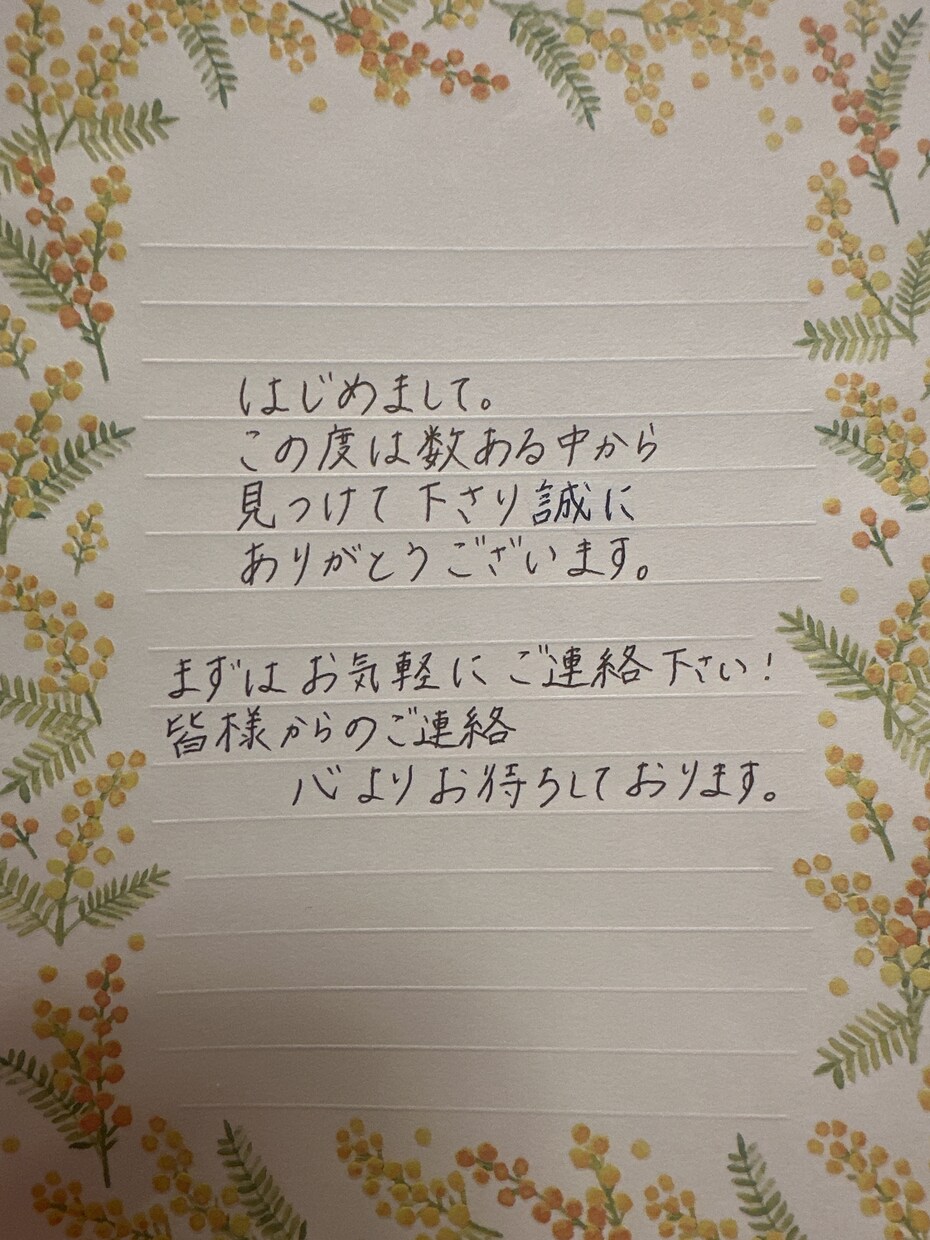 はじめまして。
この度は数ある中から
見つけて下さり誠に
ありがとうございます。
まずはお気軽にご連絡下さい!
皆様からのご連絡
心よりお待ちしております。